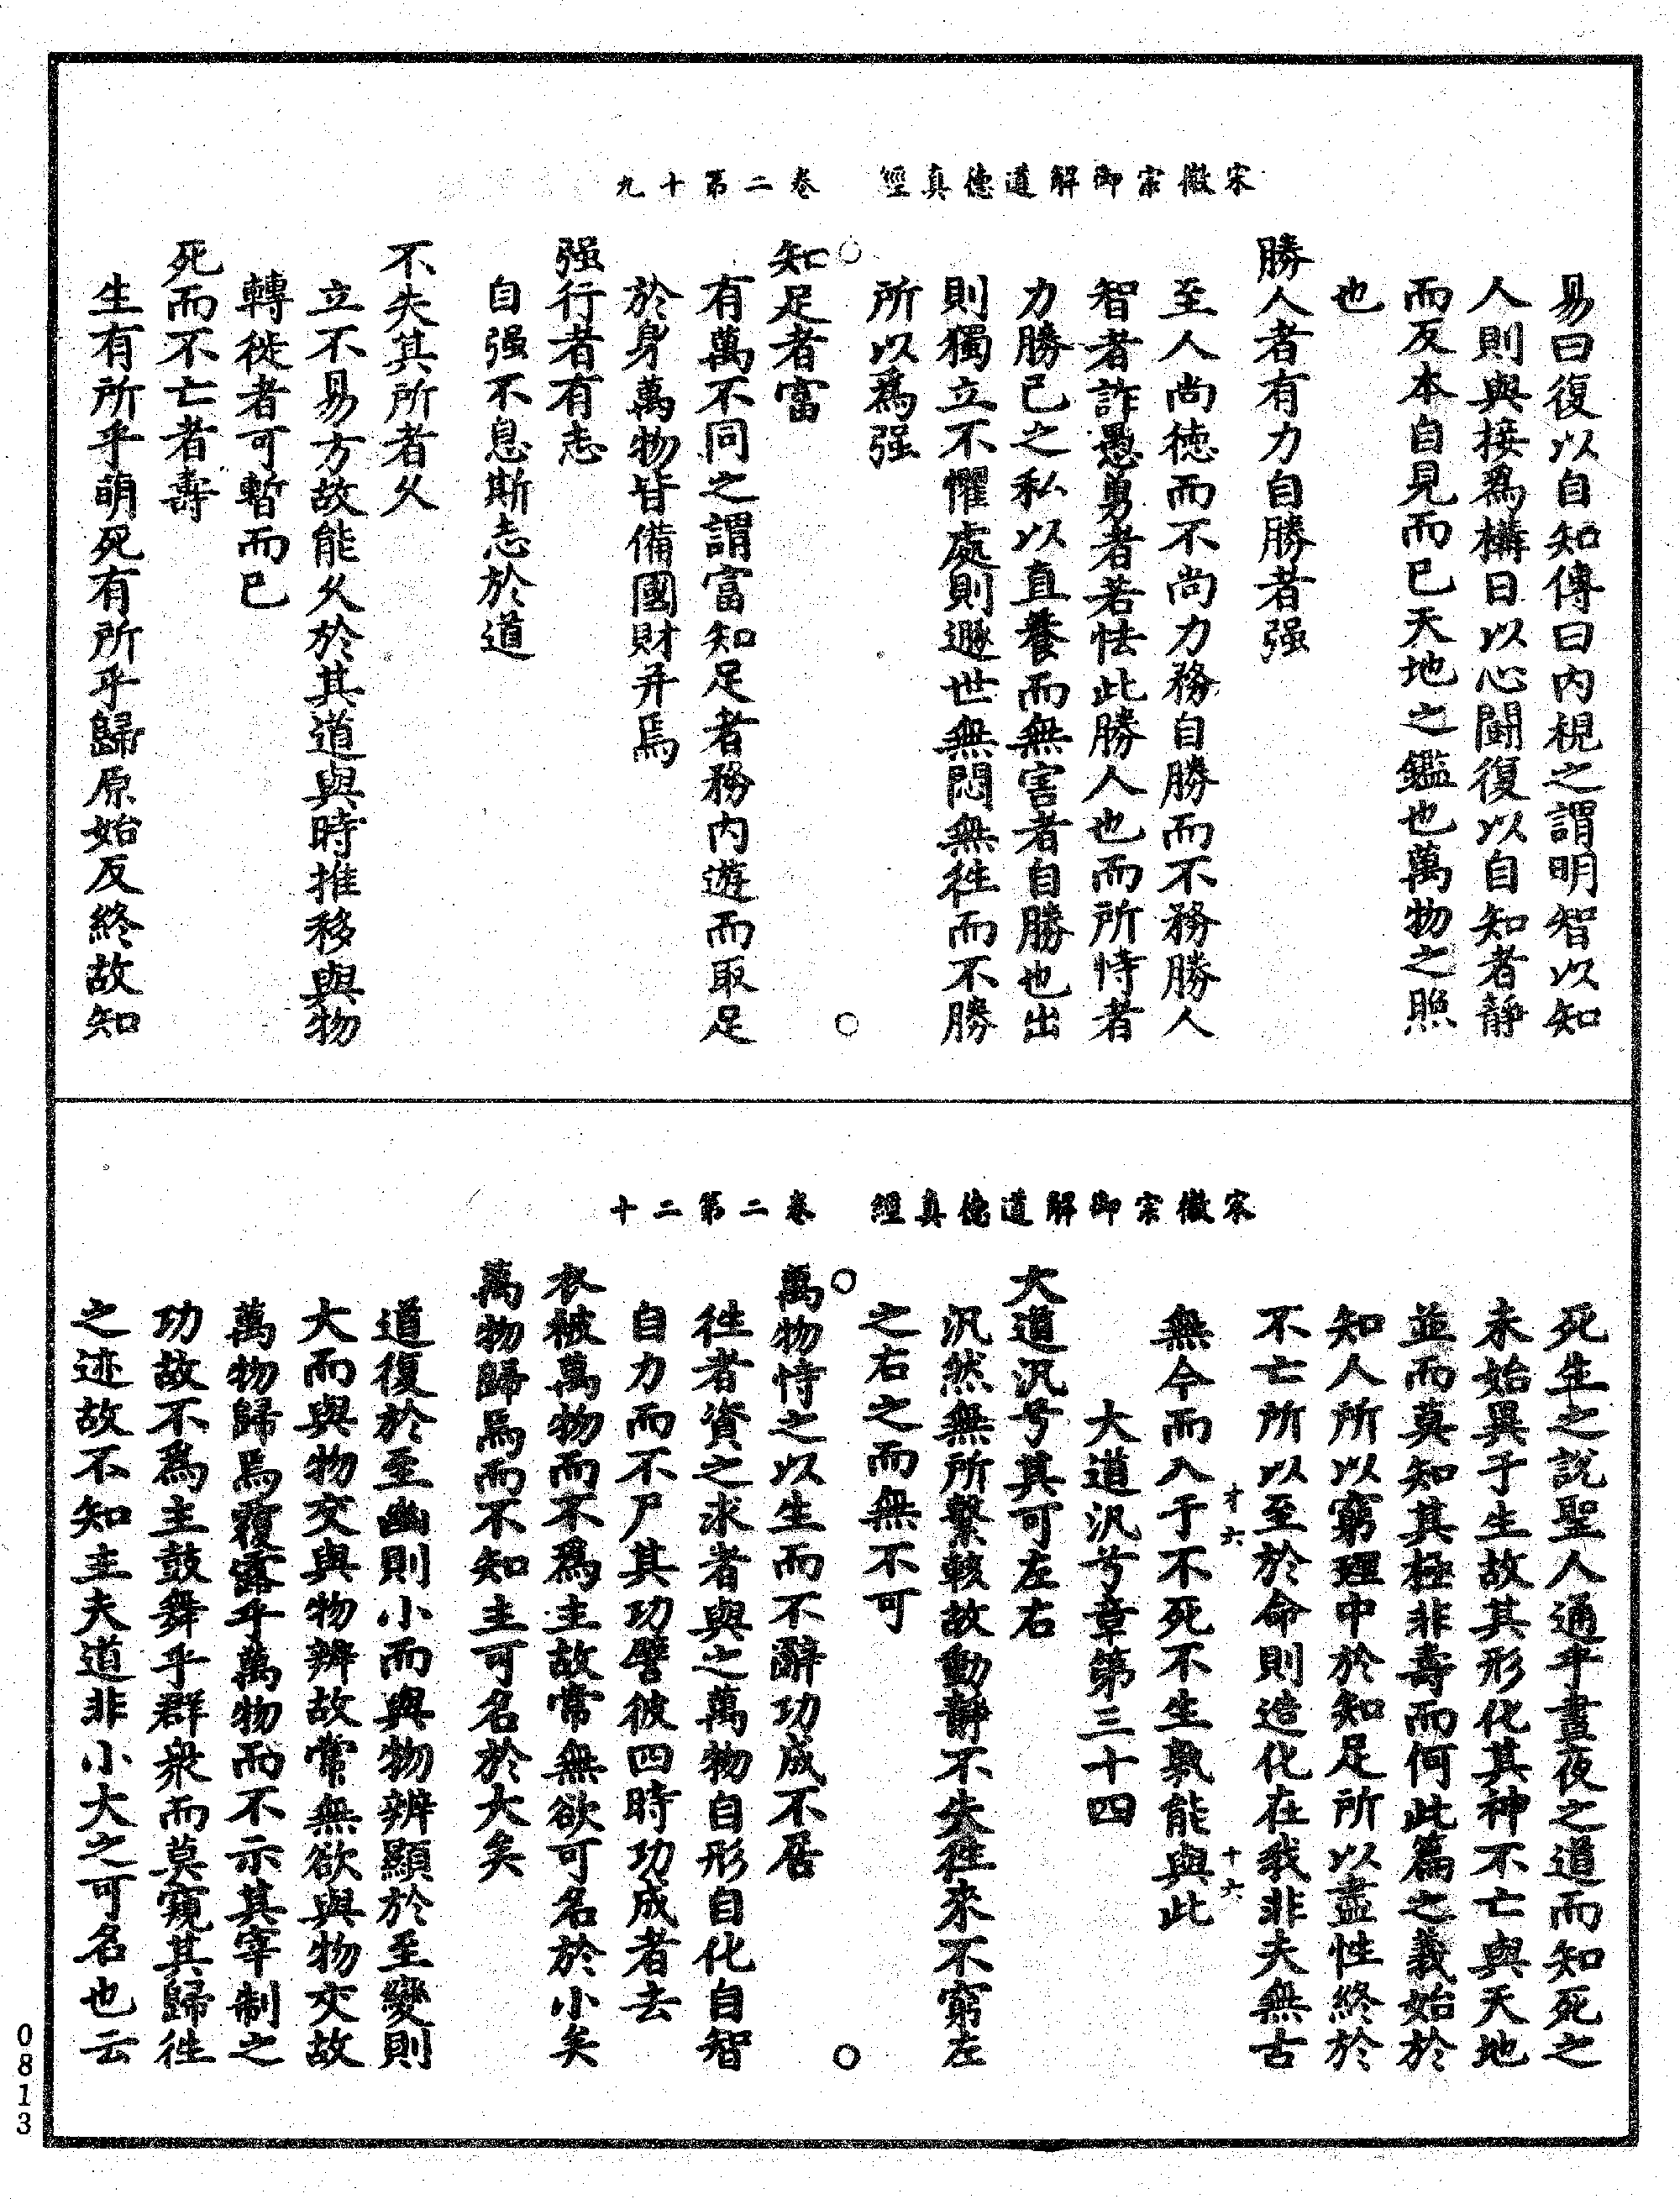 宋徽宗御解道德真經　卷二第十九
易曰復以自知傳曰内視之謂明智以知
人則與接爲構日以心鬭復以自知者靜
而反本自見而已天地之鑑也萬物之照
也
勝人者有力自勝者强
至人尚德而不尚力務自勝而不務勝人
智者詐愚勇者若怯此勝人也而所恃者
力勝已之私以直養而無害者自勝也出
則獨立不懼處則遯世無悶無徃而不勝
所以爲强
知足者富
有萬不同之謂富知足者務内遊而取足
於身萬物皆備國財并焉
强行者有志
自强不息斯志於道
不失其所者久
立不易方故能久於其道與時推移與物
轉徙者可暫而已
死而不亡者壽
生有所乎萌死有所乎歸原始反終故知
宋徽宗御解道德真經　卷二第二十
死生之説聖人通乎晝夜之道而知死之
未始異于生故其形化其神不亡與天地
並而莫知其極非壽而何此篇之義始於
知人所以窮理中於知足所以盡性終於
不亡所以至於命則造化在我非夫無古
才六
十六
無今而入于不死不生孰能與此
大道汎兮章第三十四
大道汎兮其可左右
汎然無所繫輆故動靜不失徃來不窮左
之右之而無不可
萬物恃之以生而不辭功成不居
徃者資之求者與之萬物自形自化自智
自力而不尸其功譬彼四時功成者去
衣被萬物而不爲主故常無欲可名於小矣
萬物歸焉而不知主可名於大矣
道復於至幽則小而與物辨顯於至變則
大而與物交與物辨故常無欲與物交故
萬物歸焉覆露乎萬物而不示其宰制之
功故不爲主鼓舞乎群衆而莫窺其歸徃
之迹故不知主夫道非小大之可名也云
0813